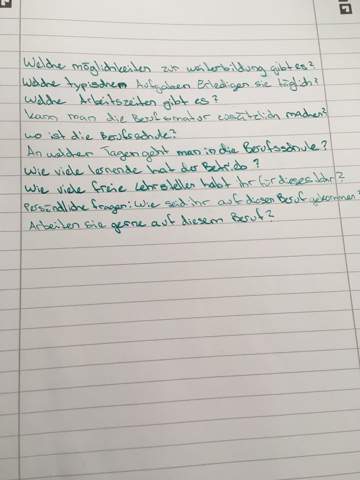 Welche möglichkeiten zur weiterbildung gibt es?
Welche typischen Aufgaben Erledigen sie täglich?
Welche Arbeitszeiten gibt es?
kann man die Berufsmatur zusätzlich machen?
wo ist die Berufsschule?
An welchen Tagen geht man in die Berufsschule?
Wie viele lernende hat der Betrieb?
Wie viele freie Lehrstellen habt ihr für dieses Jahr?
Persöndliche fragen: Wie seid ihr auf diesen Beruf gekommen?
Arbeiten sie gerne auf diesem Beruf?